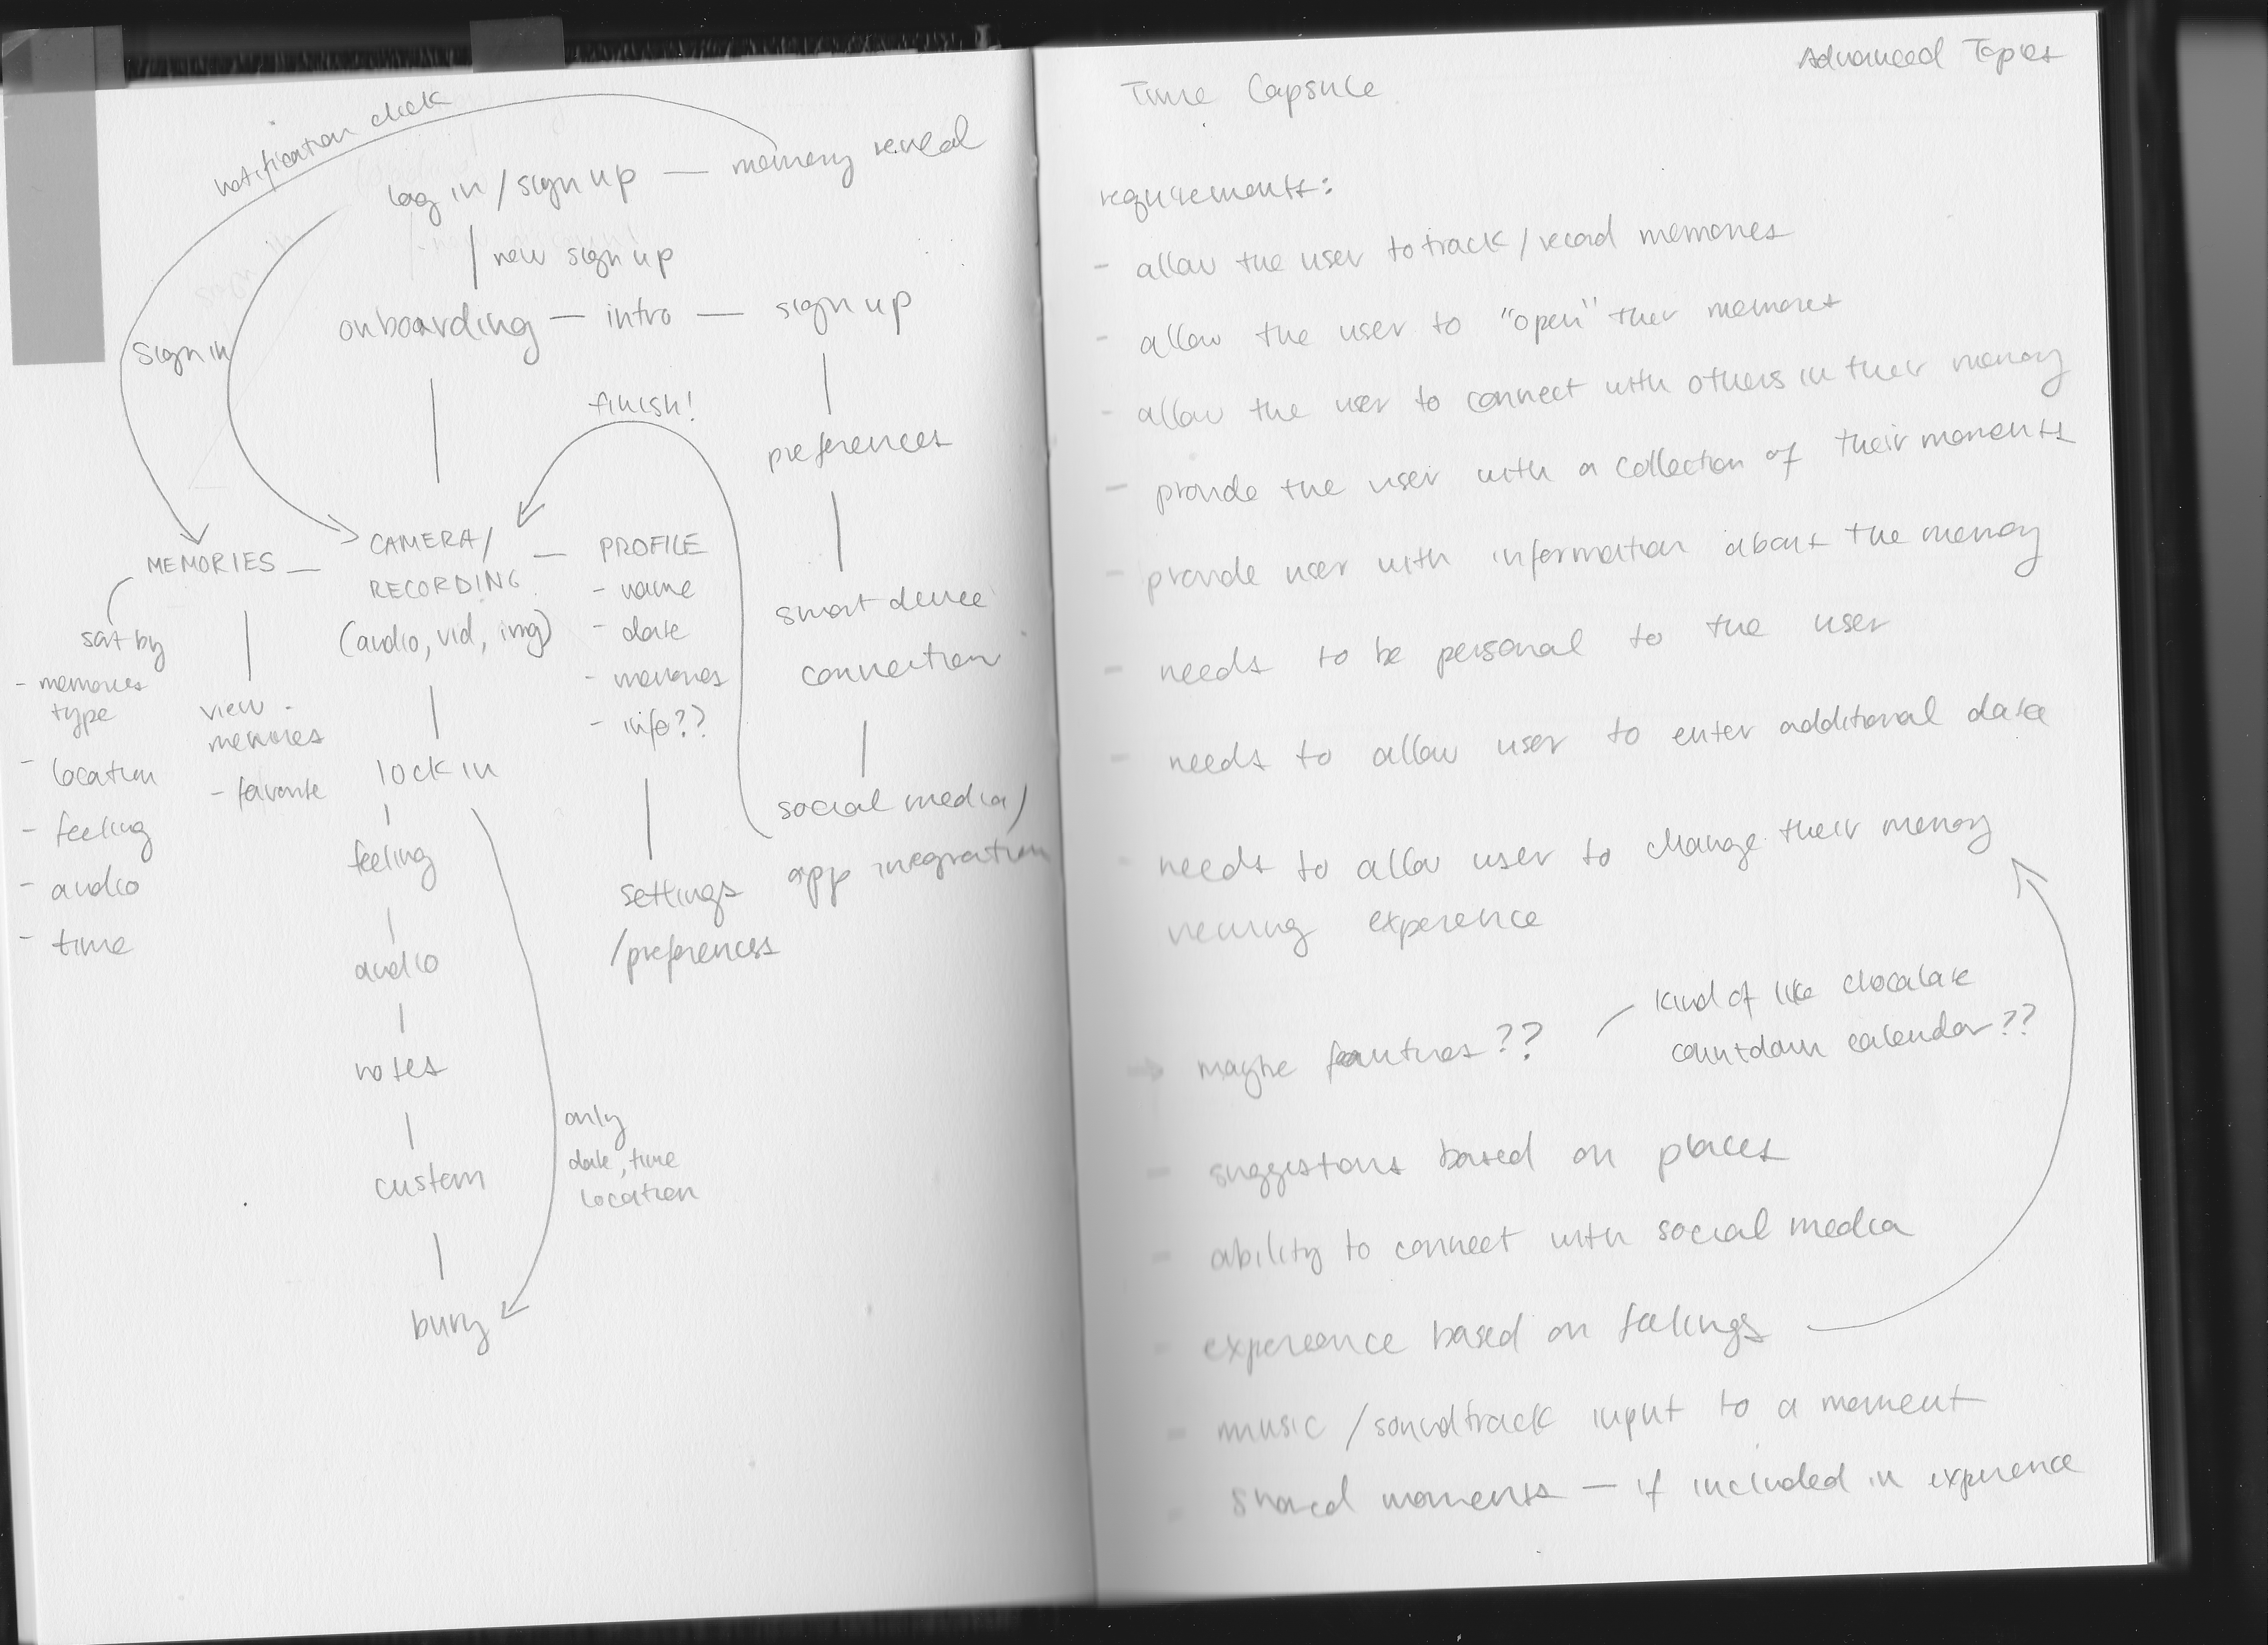 notification click
log in / sign up — memory reveal
new sign up
onboarding — intro — sign up
sign in
finish!
preferences
MEMORIES — CAMERA/ — PROFILE
RECORDING
(audio, vid, img)
- name
- date
- memories
- info??
smart device
connection
sort by
- memories
type
- location
- feeling
- audio
- time
view
memories
- favorite
lock in
feeling
audio
notes
custom
bury
only
date, time
location
settings
/preferences
social media/
app integration
Advanced Topics
Time Capsule
requirements:
- allow the user to track/record memories
- allow the user to "open" their memories
- allow the user to connect with others in their memory
- provide the user with a collection of their moments
- provide user with information about the memory
- needs to be personal to the user
- needs to allow user to enter additional data
- needs to allow user to change their memory
viewing experience
→ maybe features??
kind of like chocolate
countdown calendar??
- suggestions based on places
- ability to connect with social media
- experience based on feelings
- music /soundtrack input to a moment
- shared moments — if included in experience